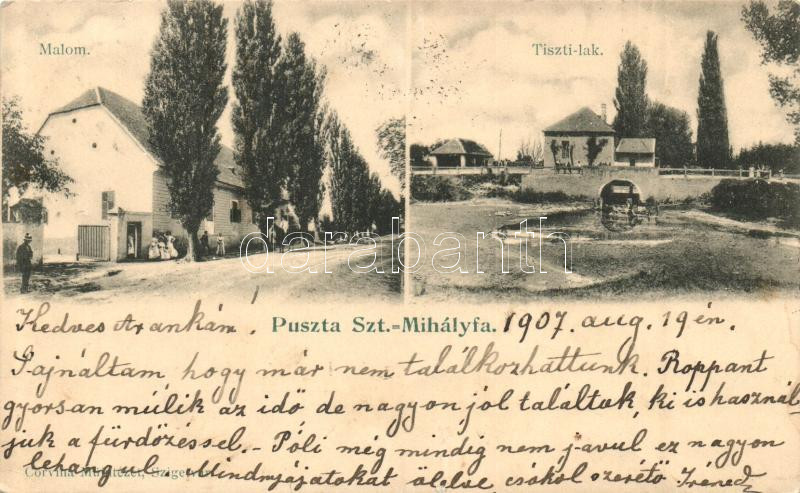 Malom.
Tiszti-lak.
darabanth
Kedves Arankám!
Puszta Szt.=Mihályfa.
1907. aug. 19én.
Sajnáltam hogy már nem találkozhattunk. Roppant
gyorsan múlik az idő de nagyon jól találtuk, ki is használ
juk a fürdőzéssel. - Póli még mindig nem javul ez nagyon
lehangul. Mindnyájatokat ölelve csókol szerető Iréned
Corvina Műintézet, Szigetvár